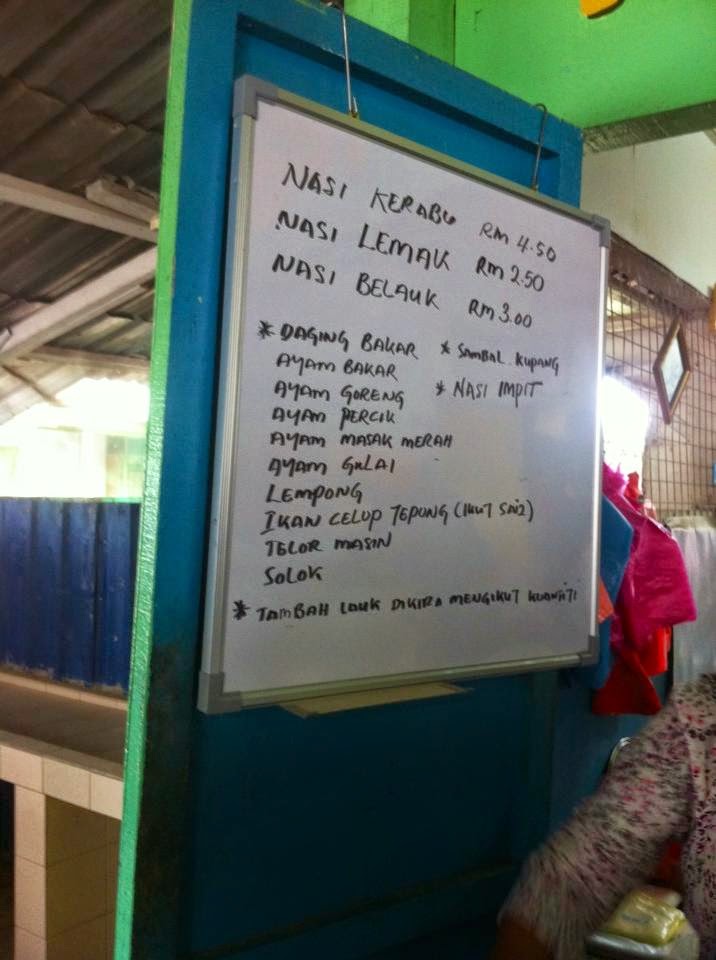 NASI KERABU RM 4.50
NASI LEMAK RM 2.50
NASI BELAUK RM 3.00
* DAGING BAKAR * SAMBAL. KUPANG
AYAM BAKAR
AYAM GORENG * NASI IMPIT
AYAM PERCIK
AYAM MASAK MERAH
AYAM GULAI
LEMPONG
IKAN CELUP TEPUNG (IKUT SAIZ)
TELOR MASIN
SOLOK
* TAMBAH LAUK DIKIRA MENGIKUT